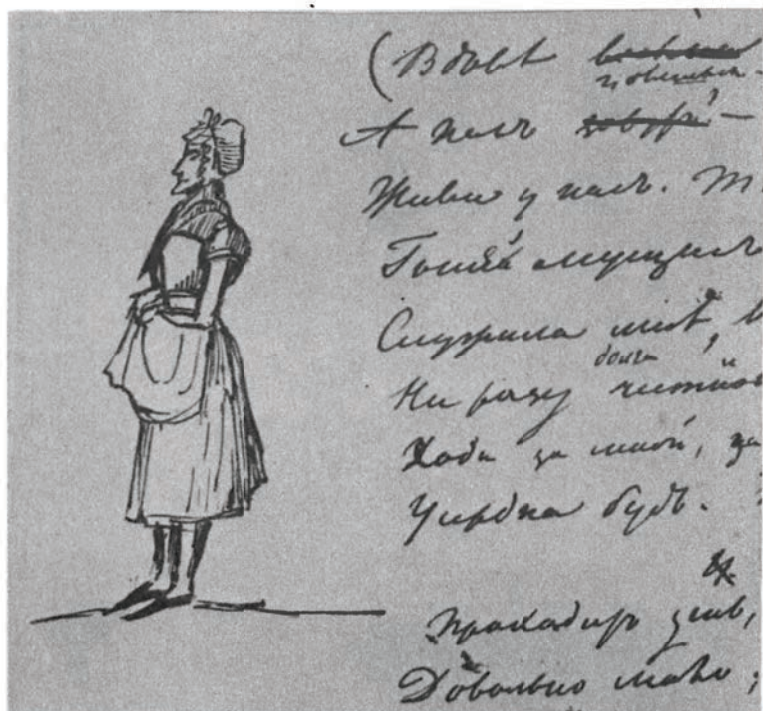 (Вдовѣ
А намъ —
Живи у насъ.
Гоняй мущинъ
Служила мнѣ,
долга
Ни разу чести не
Ходи за мной, за
Усердна будь.
Проходитъ день,
Довольно мало;